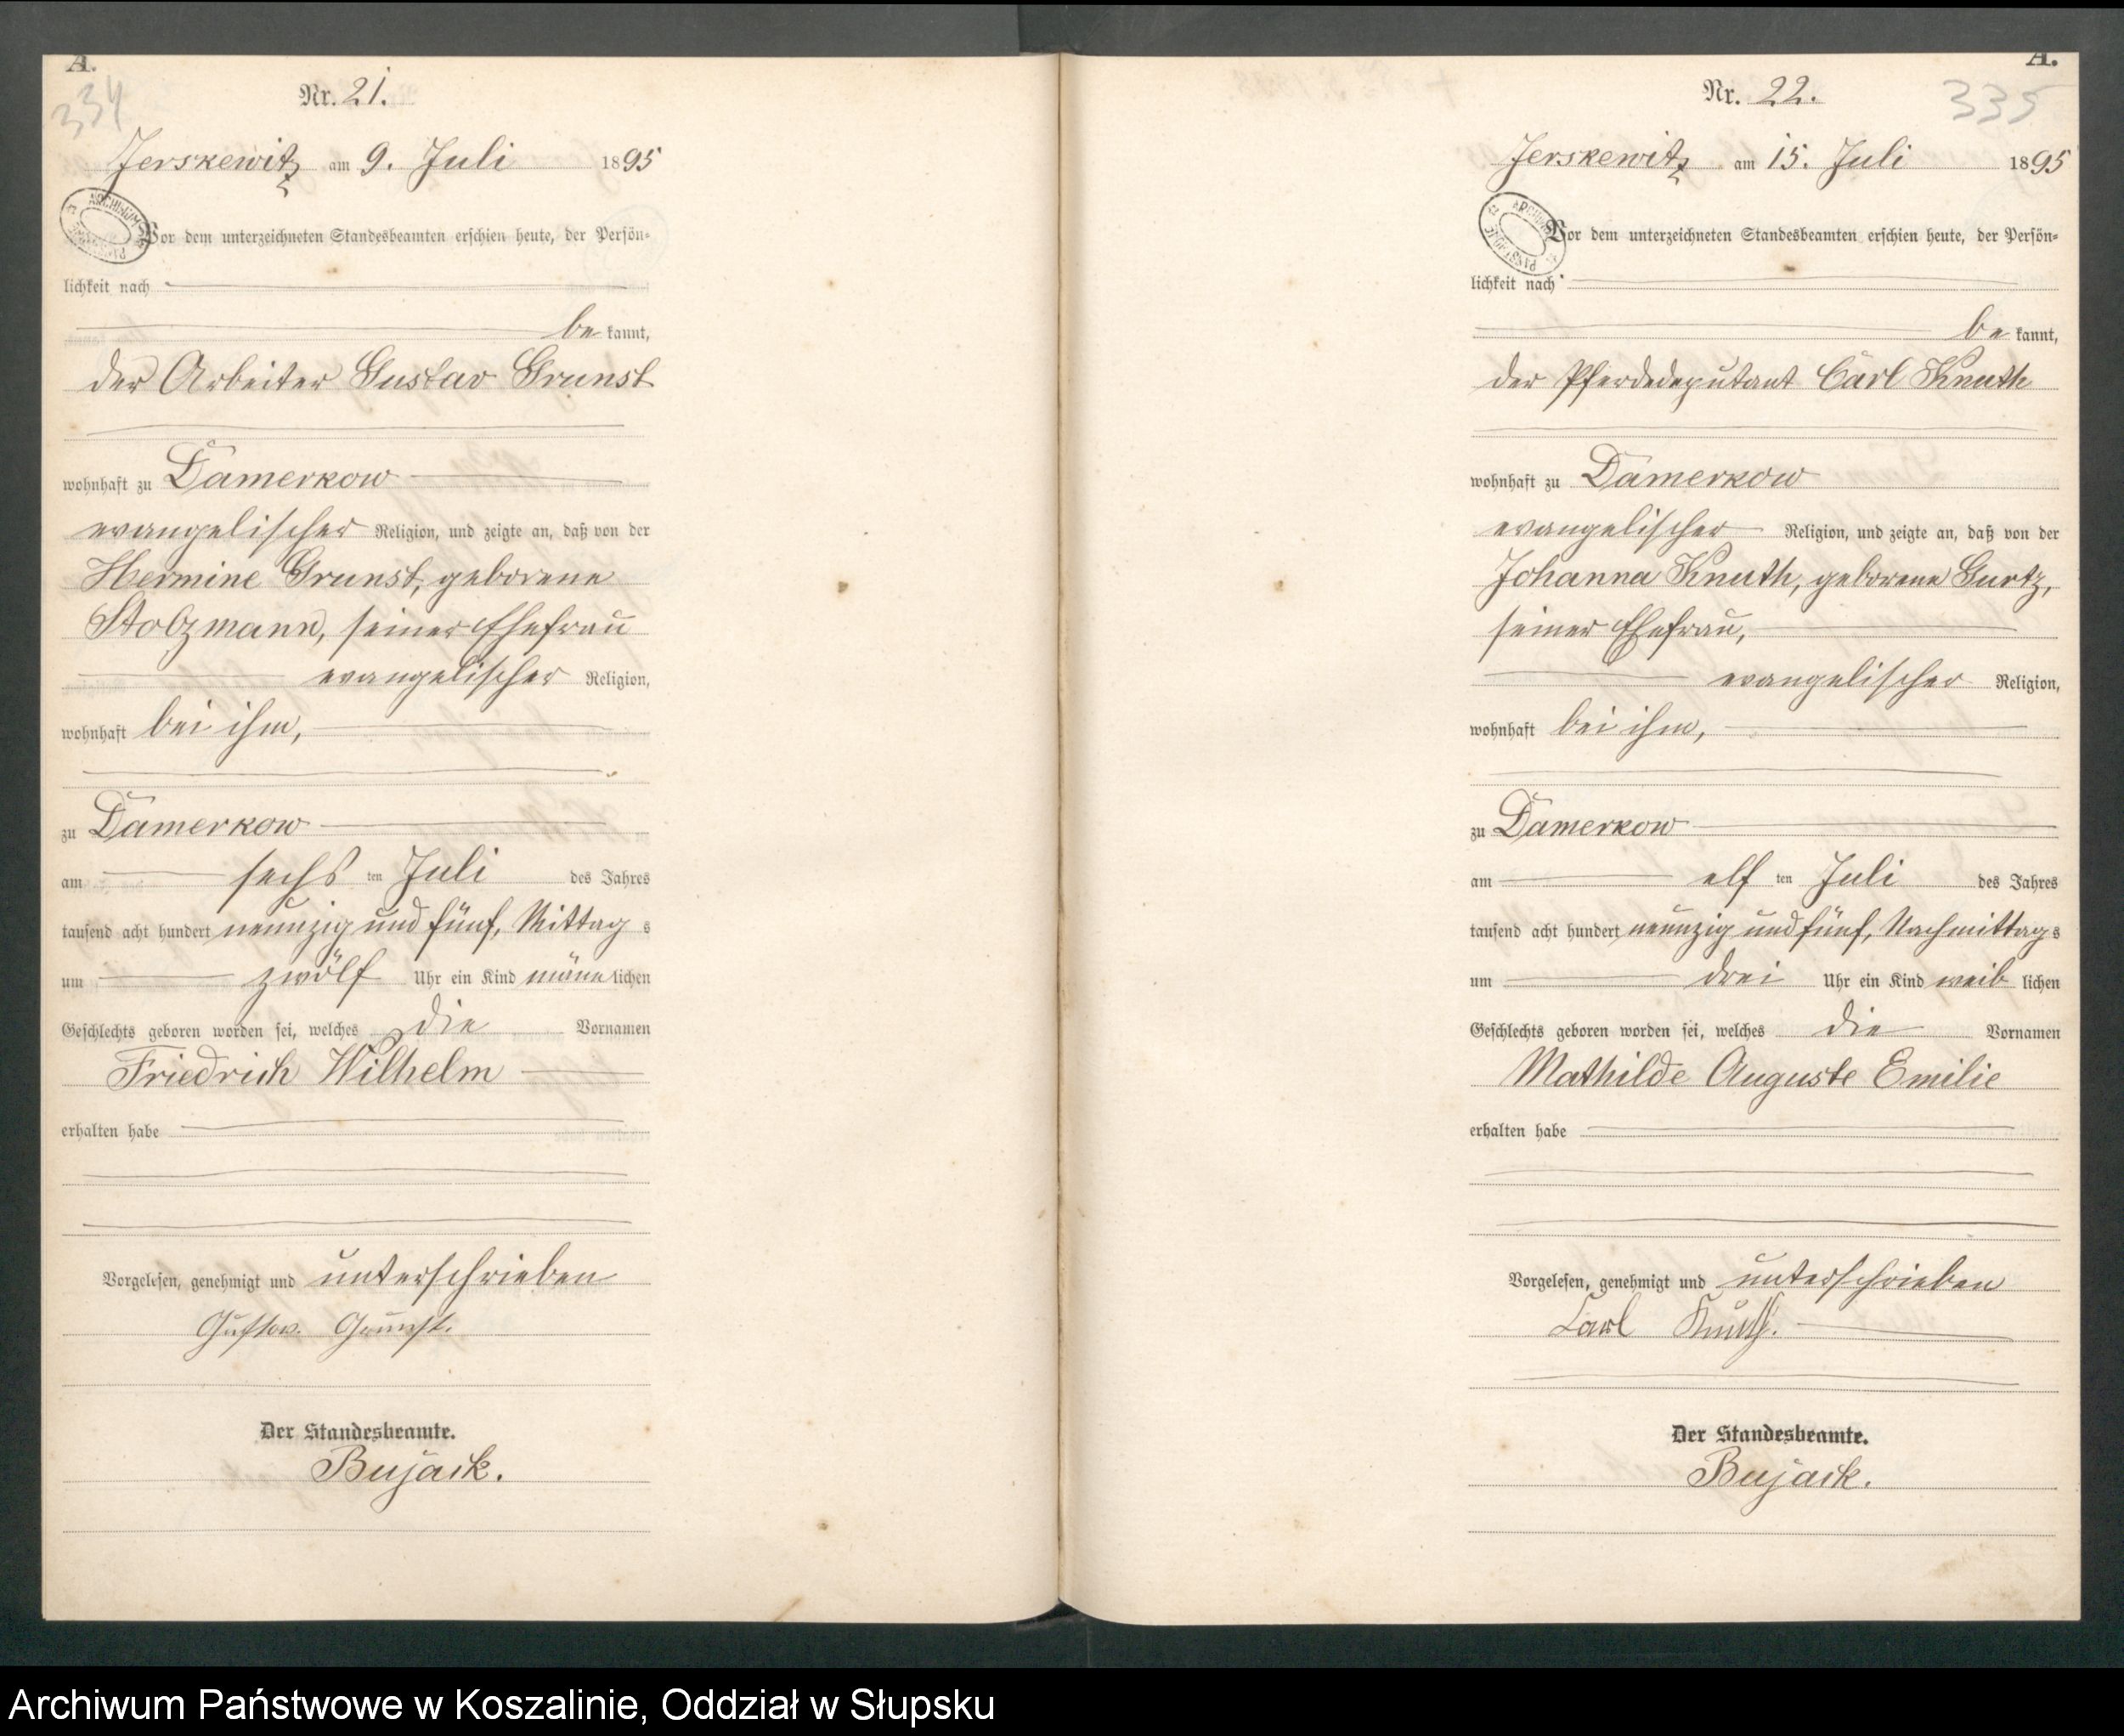 A.
334
Nr. 21.
Jerskewitz am 9. Juli 1895
Vor dem unterzeichneten Standesbeamten erschien heute, der Persön-
lichkeit nach
be kannt,
der Arbeiter Gustav Grunst
wohnhaft zu Damerkow
evangelischer Religion, und zeigte an, daß von der
Hermine Grunst, geborene
Stolzmann, seiner Ehefrau
evangelischer Religion,
wohnhaft bei ihm,
zu Damerkow
am sechs ten Juli des Jahres
tausend acht hundert neunzig und fünf, Mittag s
um zwölf Uhr ein Kind männ lichen
Geschlechts geboren worden sei, welches die Vornamen
Friedrich Wilhelm
erhalten habe
Vorgelesen, genehmigt und unterschrieben
Gustav. Grunst.
Der Standesbeamte.
Bujack.
A.
335
Nr. 22.
Jerskewitz am 15. Juli 1895
Vor dem unterzeichneten Standesbeamten erschien heute, der Persön-
lichkeit nach
be kannt,
der Pferdedeputant Carl Knuth
wohnhaft zu Damerkow
evangelischer Religion, und zeigte an, daß von der
Johanna Knuth, geborene Gurtz,
seiner Ehefrau,
evangelischer Religion,
wohnhaft bei ihm,
zu Damerkow
am elf ten Juli des Jahres
tausend acht hundert neunzig und fünf, Nachmittag s
um drei Uhr ein Kind weib lichen
Geschlechts geboren worden sei, welches die Vornamen
Mathilde Auguste Emilie
erhalten habe
Vorgelesen, genehmigt und unterschrieben
Carl Knuth.
Der Standesbeamte.
Bujack.
Archiwum Państwowe w Koszalinie, Oddział w Słupsku